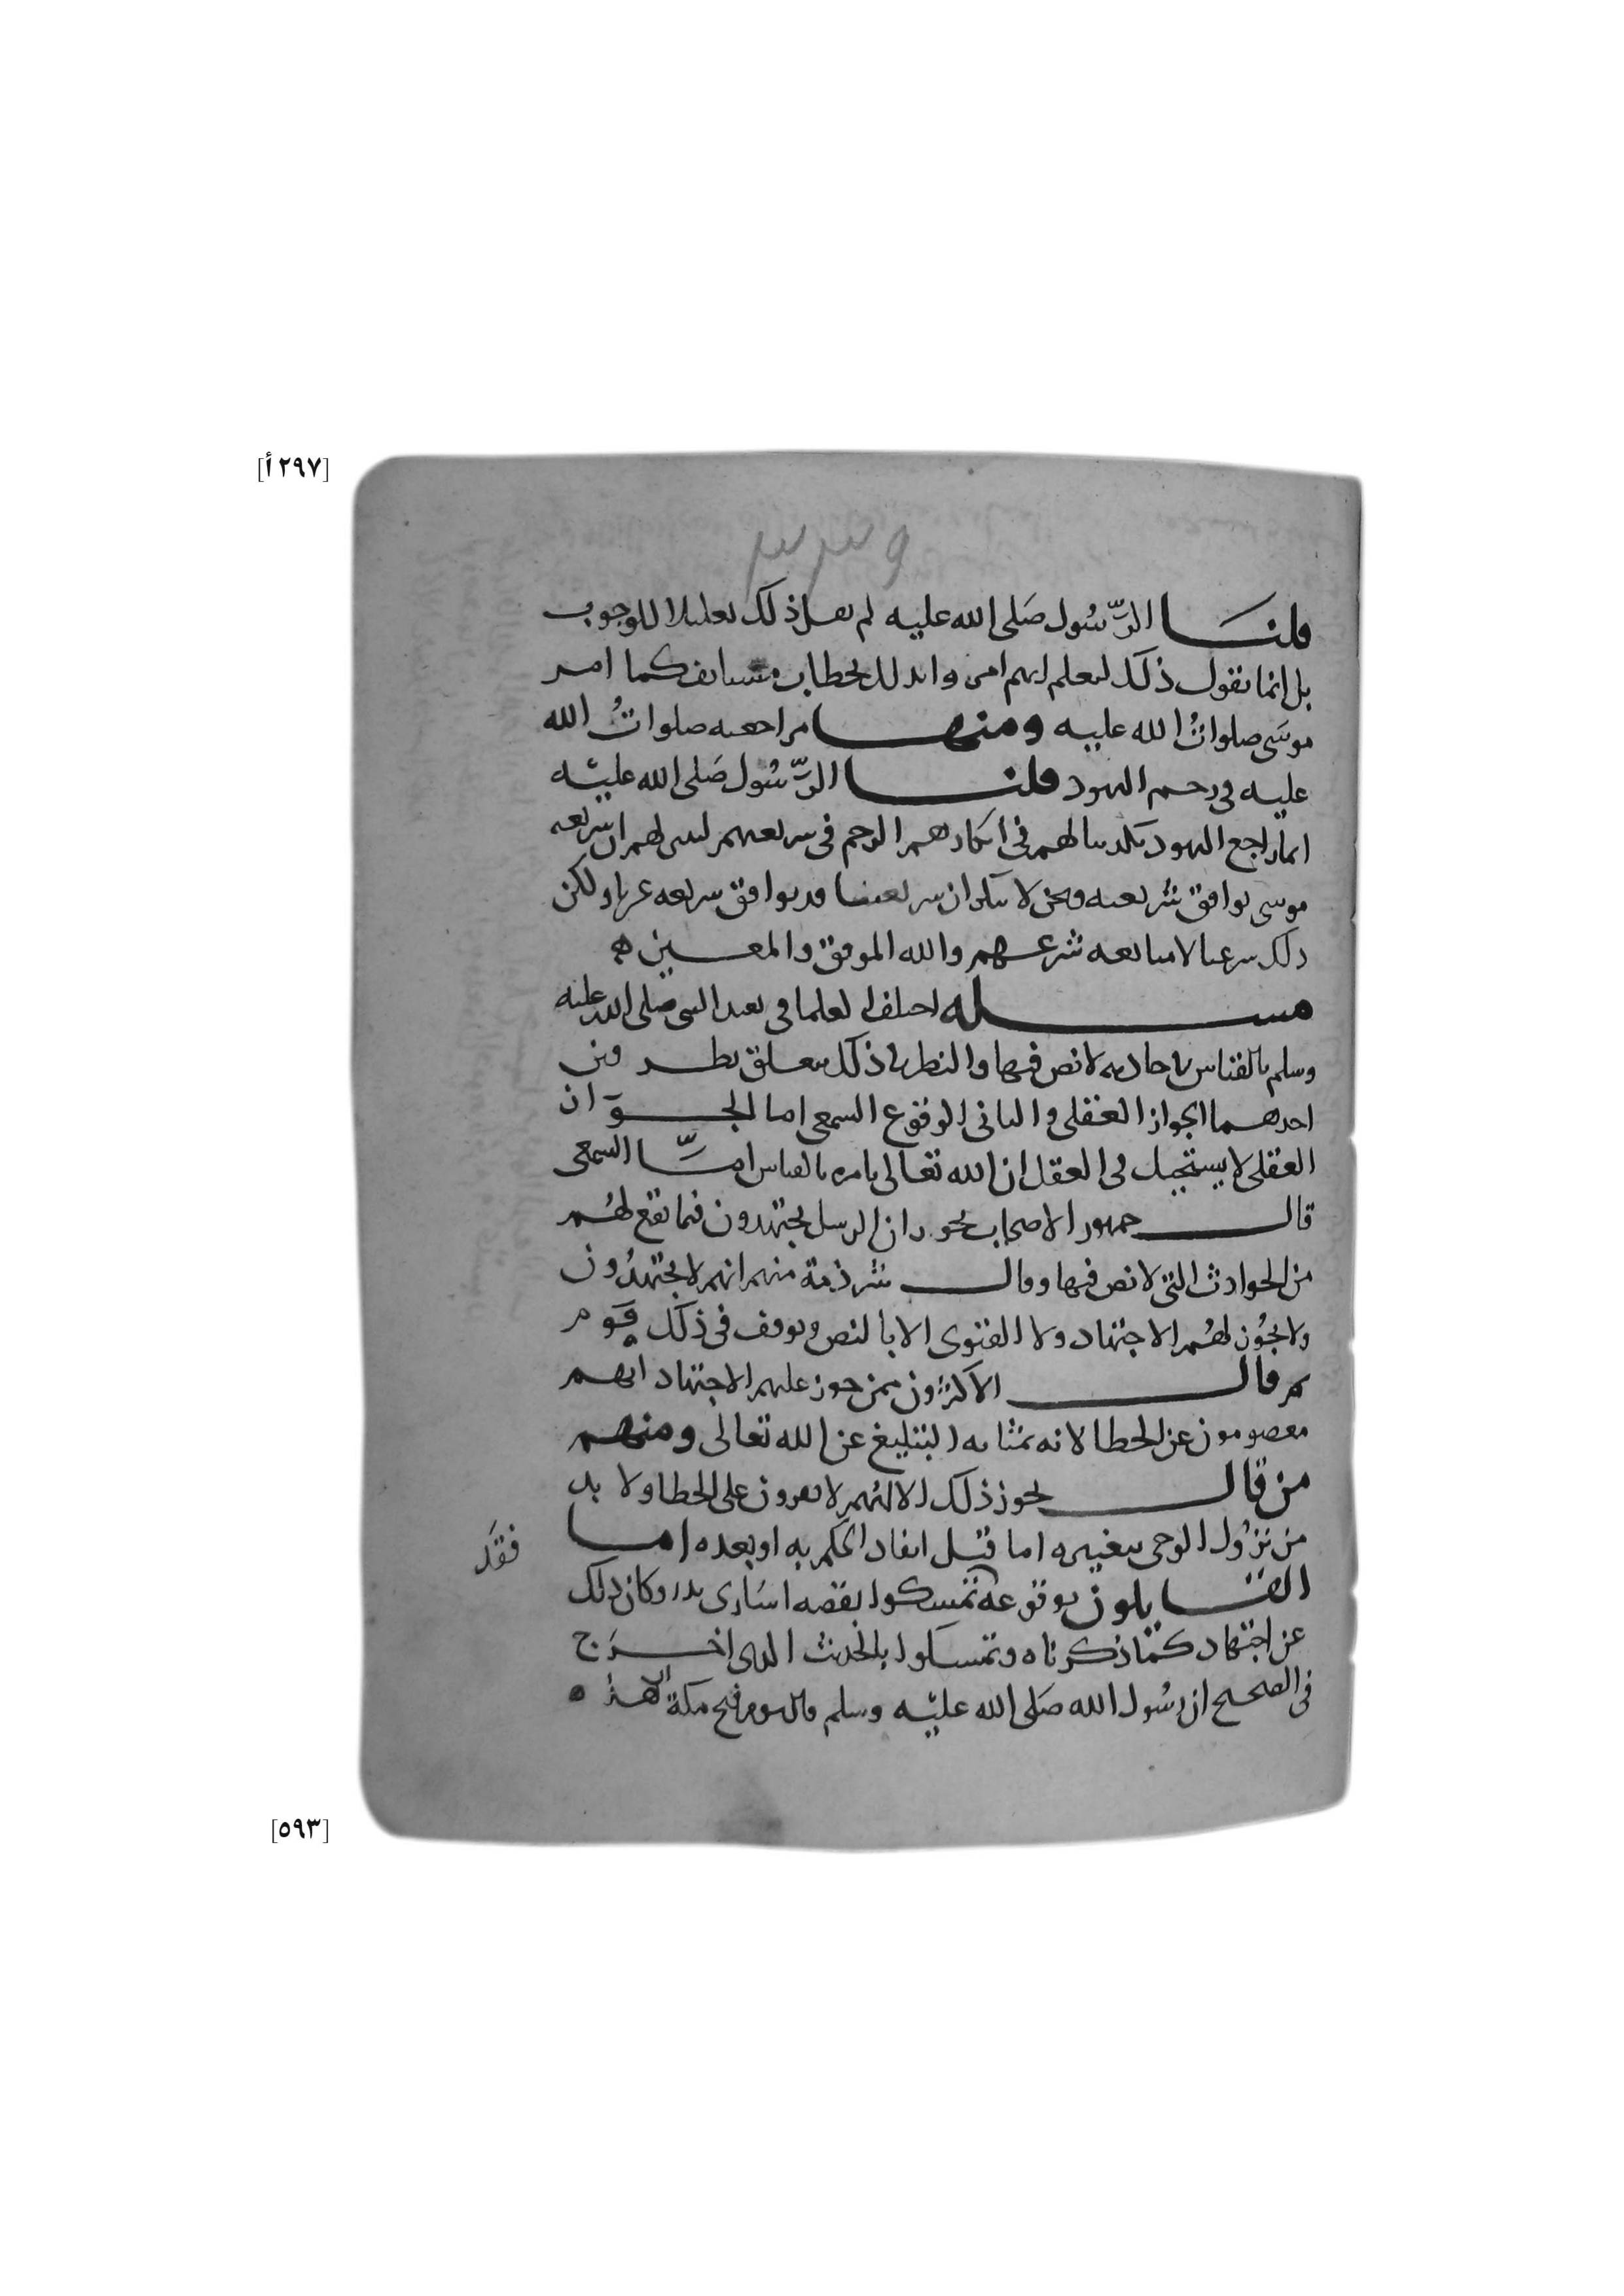 [٢٩٧ أ]
٣٣٩
قلنا الرسول صلى الله عليه لم يقل ذلك تعليلا للوجوب
بل انما نقول ذلك ليعلم انهم امروا بذلك بخطاب مستانف كما امر
موسى صلوات الله عليه ومنها مراجعته صلوات الله
عليه في رجم اليهود قلنا الرسول صلى الله عليه
انما راجع اليهود تكذيبا لهم في انكارهم الرجم في شريعتهم ليبين لهم ان شريعه
موسى توافق شريعته ونحن لا ننكر ان شريعتنا قد توافق شريعه غيرنا ولكن
ذلك شرعنا لا متابعه شرعهم والله الموفق والمعين ه
مسله اختلف العلما في تعبد النبي صلى الله عليه
وسلم بالقياس في حادثه لا نص فيها والنظر في ذلك يتعلق بطرفين
احدهما الجواز العقلي والثاني الوقوع السمعي اما الجواز
العقلي لا يستحيل في العقل ان الله تعالى يامره بالقياس اما السمعي
قال جمهور الاصحاب يجوز ان الرسل يجتهدون فيما يقع لهم
من الحوادث التي لا نص فيها وقال شرذمة منهم انهم لا يجتهدون
ولا يجوز لهم الاجتهاد ولا الفتوى الا بالنص وتوقف في ذلك قوم
ثم قال الاكثرون ممن جوز عليهم الاجتهاد انهم
معصومون عن الخطا لانه بمثابه التبليغ عن الله تعالى ومنهم
من قال يجوز ذلك الا انهم لا يقرون على الخطا ولا بد
من نزول الوحي بتغييره اما قبل انفاد الحكم به او بعده اما
فقد
القايلون بوقوعه تمسكوا بقصه اسارى بدر وكان ذلك
عن اجتهاد كما ذكرناه وتمسكوا بالحديث الذي اخرج
في الصحيح ان رسول الله صلى الله عليه وسلم قال يوم فتح مكة الا هذه
[٥٩٣]